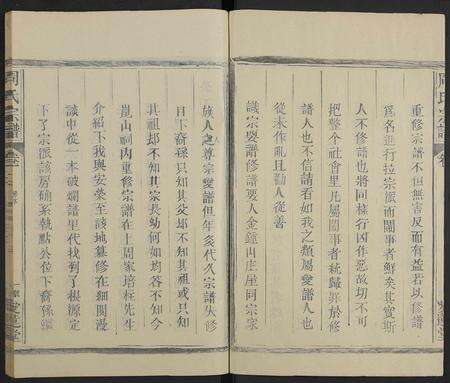 重修宗譜不恒無害反而有益若以修譜
為名進行拉宗派而鬧事者鮮矣其實斯
人不修譜也將同樣行凶作惡故切不可
把整個社會里凡屬鬧事者統歸罪於修
譜人也不信請看如我之類屬愛譜人也
從未作亂且勸人從善
識宗要譜修譜要人金鐘山庄座同宗家
族人也尊宗愛譜但年多代久宗譜失修
目下裔孫只知其父却不知其祖或只知
其祖却不知其宗長幼何如均各不知今
崑山祠內重修宗譜在上周家培柱先生
介紹下我與安榮至該地纂修在細閱漫
談中從一本破爛譜里代找到了根源定
下了宗派該房確系執點公位下裔孫繼
周氏宗譜
卷